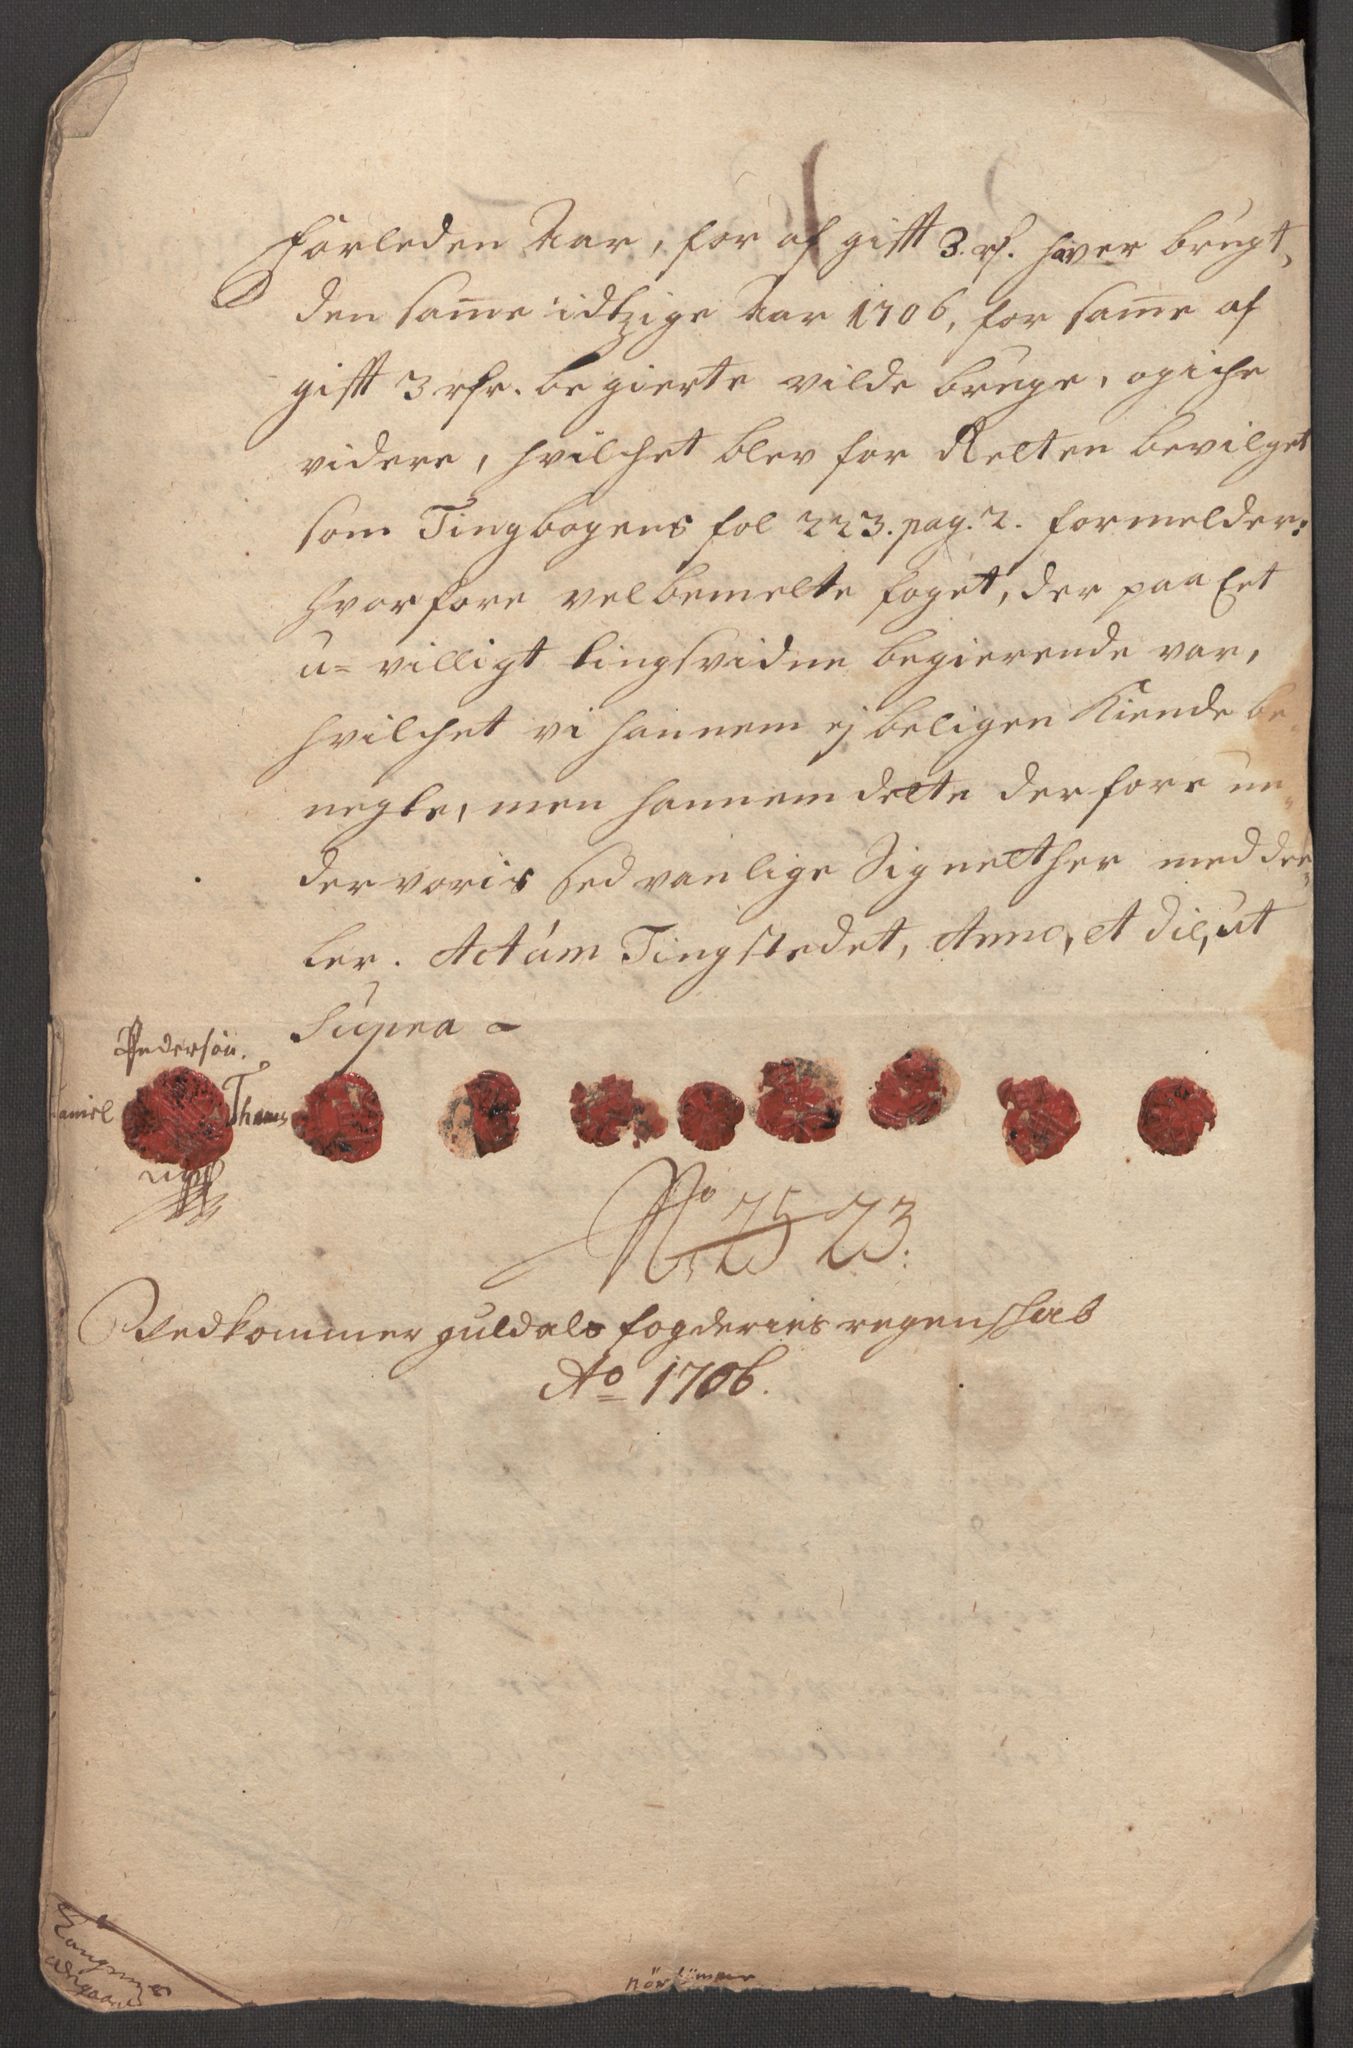 forleden Aar, for afgifft 3 rf. hver brugt,
den same idtzige Aar 1706, for same af
gifft 3 rfr. begierte vilde bruge, og iche
videre, hvilchet blev for Retten bevilget
som Tingbogens fol 223. pag. 2. formelder:
hvorfore velbemelte foget, der paa Eet
u-villigt tingsvidne begierende var,
hvilchet vi hannem ej beligen Kiende be-
negte, men hannem dette derfore un-
der voris sedvanlige Signether meddee-
ler. Actúm Tingstedet, Anno, et die, ut
Supra
Pedersøn.
Daniel Thams
No 25 25 23:
Vedkommer guldals fogderies regenschab
Ao 1706.